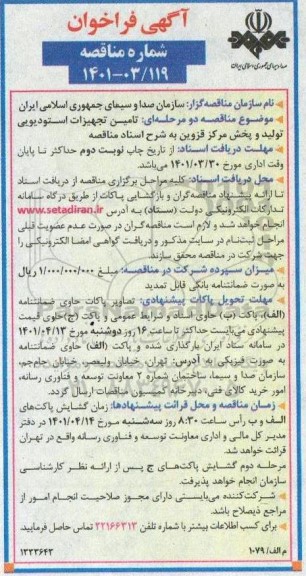 آگهی فراخوان
شماره مناقصه
۱۴۰۱-۰۳/۱۱۹
صدا و سیمای جمهوری اسلامی ایران
نام سازمان مناقصه‌گزار: سازمان صدا و سیمای جمهوری اسلامی ایران
موضوع مناقصه دو مرحله‌ای: تامین تجهیزات استودیویی
تولید و پخش مرکز قزوین به شرح اسناد مناقصه
مهلت دریافت اسناد: از تاریخ چاپ نوبت دوم حداکثر تا پایان
وقت اداری مورخ ۱۴۰۱/۰۳/۳۰ می‌باشد.
محل دریافت اسناد: کلیه مراحل برگزاری مناقصه از دریافت اسناد
تا ارائه پیشنهاد مناقصه‌گران و بازگشایی پاکات از طریق درگاه سامانه
تدارکات الکترونیکی دولت (ستاد) به آدرس www.setadiran.ir
انجام خواهد شد و لازم است مناقصه‌گران در صورت عدم عضویت قبلی
مراحل ثبت‌نام در سایت مذکور و دریافت گواهی امضا الکترونیکی را
جهت شرکت در مناقصه محقق سازند.
میزان سپرده شرکت در مناقصه: مبلغ ۱/۰۰۰/۰۰۰/۰۰۰ ریال
به صورت ضمانتنامه بانکی قابل تمدید
مهلت تحویل پاکات پیشنهادی: تصاویر پاکات حاوی ضمانتنامه
(الف)، پاکت (ب) حاوی اسناد و شرایط عمومی و پاکت (ج)حاوی قیمت
پیشنهادی می‌بایست حداکثر تا ساعت ۱۶ روز دوشنبه مورخ ۱۴۰۱/۰۴/۱۳
در سامانه ستاد ایران بارگذاری شده و پاکت (الف) حاوی ضمانتنامه
به صورت فیزیکی به آدرس: تهران، خیابان ولیعصر، خیابان جام‌جم،
سازمان صدا و سیما، ساختمان شماره ۲ معاونت توسعه و فناوری رسانه،
امور خرید کالای فنی، دبیرخانه کمیسیون مناقصات ارسال گردد.
زمان مناقصه و محل قرائت پیشنهادها: زمان گشایش پاکت‌های
الف و ب رأس ساعت ۸:۳۰ روز سه‌شنبه مورخ ۱۴۰۱/۰۴/۱۴ در دفتر
مدیر کل مالی و اداری معاونت توسعه و فناوری رسانه واقع در تهران
قرائت خواهد شد.
مرحله دوم گشایش پاکت‌های ج پس از ارائه نظر کارشناسی
سازمان انجام خواهد پذیرفت.
شرکت‌کننده می‌بایستی دارای مجوز صلاحیت انجام امور از
مراجع ذیصلاح باشد.
برای کسب اطلاعات بیشتر با شماره تلفن ۲۲۱۶۶۳۱۳ تماس حاصل فرمایید.
م الف/ ۱۰۷۹
۱۳۲۳۶۴۳